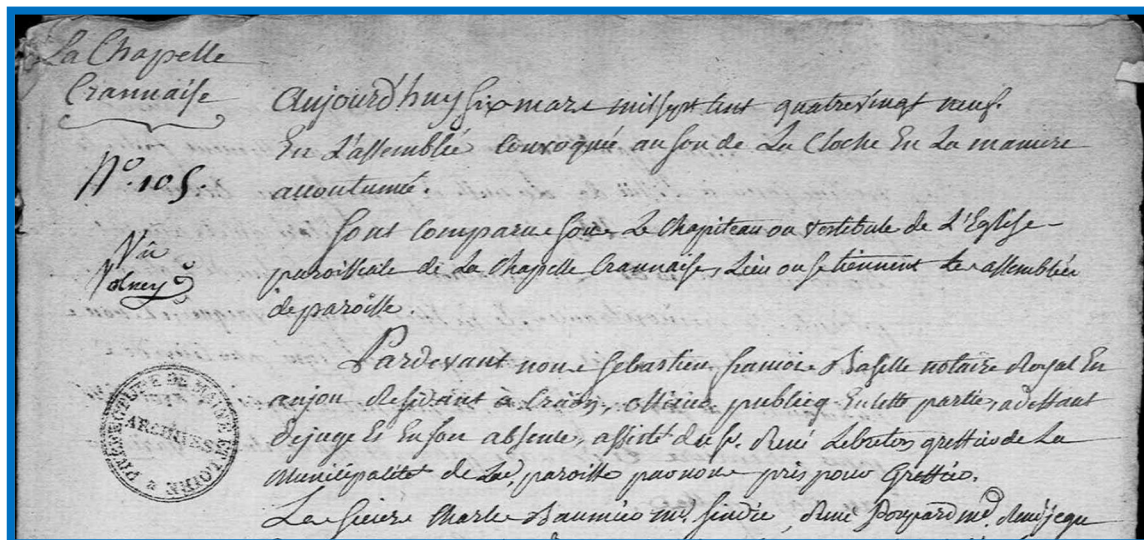 La Chapelle
Crannaise
N°. 105.
Vû
Volney
Aujourd'huy six mars mil sept cent quatrevingt neuf.
En L'assemblée Convoquée au son de La Cloche En La maniere
accoutumée.
Sont comparus sous Le Chapiteau ou vestibule de L'Eglise
paroissiale de La Chapelle Crannaise, Lieu ou se tiennent Les assemblées
de paroisse.
Pardevant nous Sebastien françois notaire Royal En
anjou Residant à Craon, officier publicq En cette partie, adeffaut
de juge Et En son absence, assisté du sr. René Lebreton greffier de La
Municipalité de Lad. paroisse par nous pris pour Greffier.
Les sieurs Charles md. sindic, René Poupard md. René
PREFECTURE DE MAINE ET LOIRE
ARCHIVES